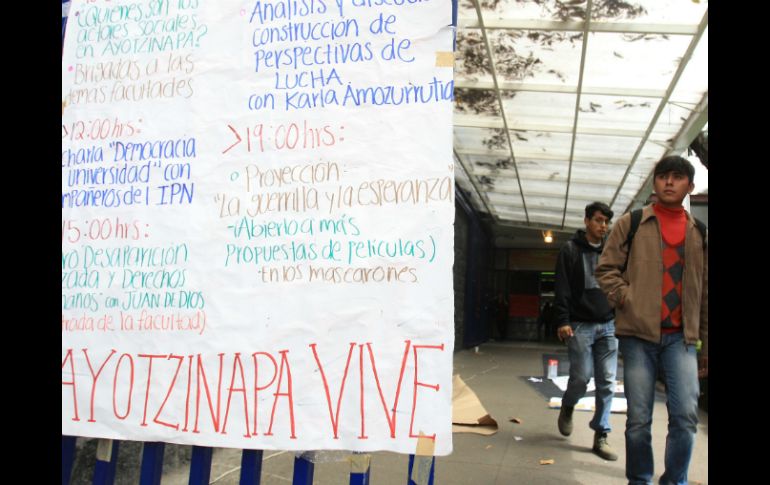 ¿Quiénes son los
actores sociales
en AYOTZINAPA?
Brigadas a las
demas facultades
>12:00hrs:
charla "Democracia
universidad" con
mpañeros del IPN
15:00hrs:
ro Desaparición
zada y Derechos
manos" con JUAN DE DIOS
trada de la facultad)
Analisis y discu
construcción de
Perspectivas de
LUCHA
con Karla Amozurrutia
>19:00hrs:
Proyección:
"La guerrilla y la esperanza"
-(Abierto a más
propuestas de películas)
En los mascarones
AYOTZINAPA VIVE